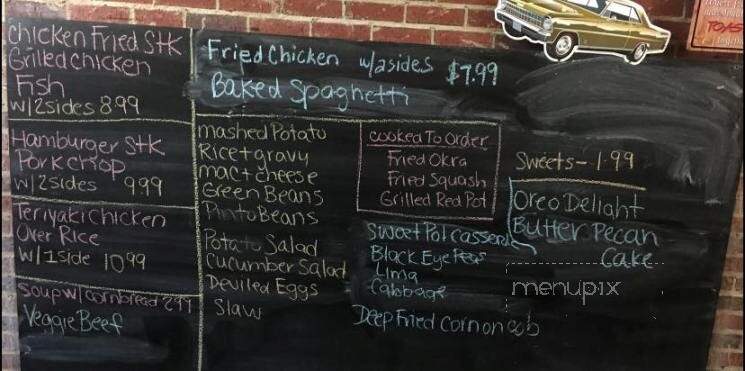 Chicken Fried Stk
Grilled chicken
Fish
w/2sides 8.99
Hamburger Stk
Pork chop
w/2sides 9.99
Teriyaki Chicken
Over Rice
w/1side 10.99
Soup w/cornbread 2.99
Veggie Beef
Fried Chicken w/2sides $7.99
Baked Spaghetti
mashed Potato
Rice+gravy
mac+cheese
Green Beans
Pinto Beans
Potato Salad
Cucumber Salad
Deviled Eggs
Slaw
Cooked To Order
Fried Okra
Fried Squash
Grilled Red Pot
Sweet Pot Casserole
Black Eye Peas
Lima
Cabbage
Deep Fried corn on cob
Sweets- 1.99
Oreo Delight
Butter Pecan
Cake
menupix
TOYS